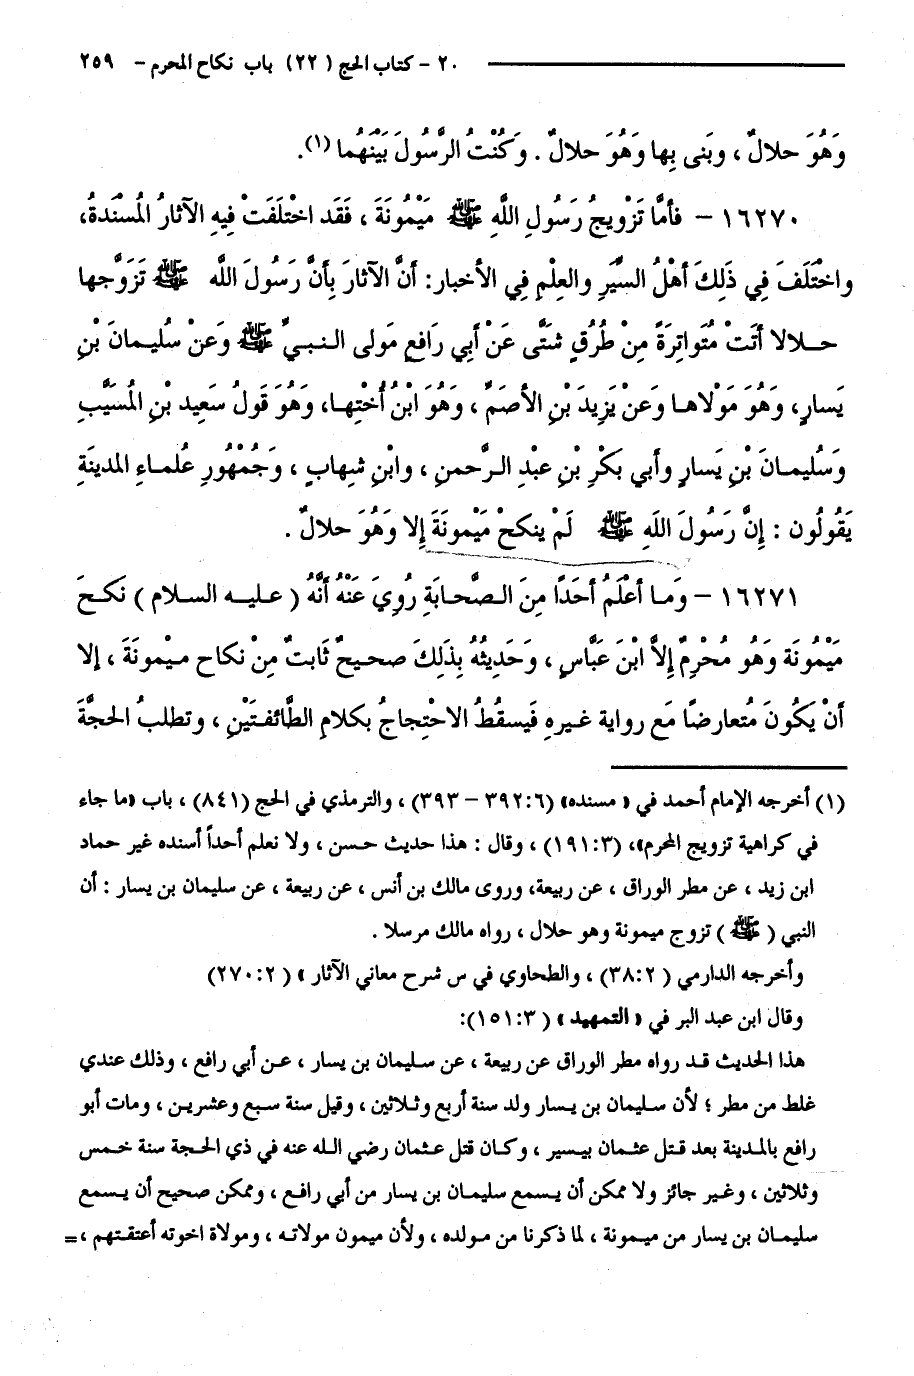 ٢٠ - كتاب الحج (٢٢) باب نكاح المحرم - ٢٥٩
وَهُوَ حلالٌ ، وبَنى بِها وَهُوَ حلالٌ . وَكُنْتُ الرَّسُولَ بَيْنَهُما (١).
١٦٢٧٠ - فأمَّا تَزْويجُ رَسُولِ اللَّهِ ﷺ مَيْمُونَةَ ، فَقَد اخْتَلَفَتْ فِيهِ الآثارُ المُسْنَدةُ،
واخْتَلَفَ فِي ذَلِكَ أَهْلُ السِّيَرِ والعِلْمِ فِي الأخبار: أنَّ الآثارَ بِأَنَّ رَسُولَ اللَّه ﷺ تَزَوَّجها
حلالا أتَتْ مُتَواتِرَةً مِنْ طُرُقٍ شتَّى عَنْ أبي رَافع مَولى النبيِّ ﷺ وَعَنْ سُليمانَ بْنِ
يَسارٍ، وَهُوَ مَوْلاها وَعَنْ يَزِيدَ بْنِ الأصَمِّ ، وَهُوَ ابْنُ أُخْتِها، وَهُوَ قَولُ سَعِيد بْنِ المُسَيَّبِ
وَسُليمانَ بْنِ يَسارٍ وأبي بَكْرِ بْنِ عبْدِ الرَّحمنِ ، وابْنِ شِهابٍ ، وَجُمْهُورِ عُلماءِ المدينَةِ
يَقُولُون : إنَّ رَسُولَ اللَهِ ﷺ لَمْ ينكحْ مَيْمُونَةَ إلا وَهُوَ حلالٌ .
١٦٢٧١ - وَما أعْلَمُ أحَدًا مِنَ الصَّحابَةِ رُويَ عَنْهُ أنَّهُ ( عليه السلام ) نكحَ
مَيْمُونَة وَهُو مُحْرِمٌ إلاَّ ابْنَ عَبَّاسٍ ، وَحَدِيثُهُ بِذَلِكَ صحيحٌ ثَابتٌ مِنْ نكاح ميْمونَةَ ، إلا
أنْ يَكُونَ مُتعارضًا مَع رواية غيرِهِ فَيسقُطُ الاحْتِجاجُ بكلامِ الطَّائفتَيْنِ ، وتطلبُ الحجَّةَ
(١) أخرجه الإمام أحمد في « مسنده» (٦:‏٣٩٢ - ٣٩٣) ، والترمذي في الحج (٨٤١) ، باب «ما جاء
في كراهية تزويج المحرم»، (٣:‏١٩١) ، وقال : هذا حديث حسن ، ولا نعلم أحداً أسنده غير حماد
ابن زيد ، عن مطر الوراق ، عن ربيعة، وروى مالك بن أنس ، عن ربيعة ، عن سليمان بن يسار : أن
النبي ( ﷺ ) تزوج ميمونة وهو حلال ، رواه مالك مرسلا .
وأخرجه الدارمي ( ٢:‏٣٨) ، والطحاوي في س شرح معاني الآثار » ( ٢:‏٢٧٠)
وقال ابن عبد البر في « التمهيد » ( ٣:‏١٥١):
هذا الحديث قد رواه مطر الوراق عن ربيعة ، عن سليمان بن يسار ، عن أبي رافع ، وذلك عندي
غلط من مطر ؛ لأن سليمان بن يسار ولد سنة أربع وثلاثين ، وقيل سنة سبع وعشرين ، ومات أبو
رافع بالمدينة بعد قتل عثمان بيسير ، وكان قتل عثمان رضي الله عنه في ذي الحجة سنة خمس
وثلاثين ، وغير جائز ولا ممكن أن يسمع سليمان بن يسار من أبي رافع ، وممكن صحيح أن يسمع
سليمان بن يسار من ميمونة ، لما ذكرنا من مولده ، ولأن ميمون مولاته ، ومولاة اخوته أعتقتهم ،=